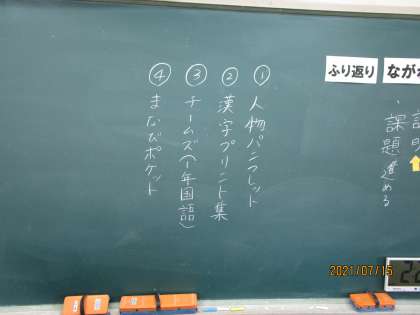 ふり返り
なが
課題
・進める
① 人物パンフレット
② 漢字プリント集
③ チームズ(1年国語)
④ まなびポケット
2021/07/15